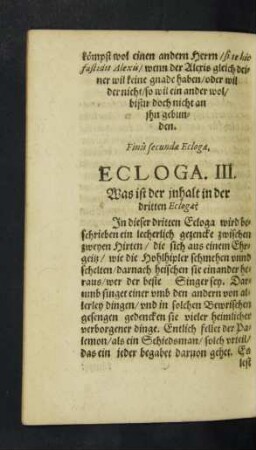 kömpst wol einen andern Herrn / si te hic
fastidit Alexis / wenn der Alexis gleich dei-
ner wil keine gnade haben / oder wil
der nicht / so wil ein ander wol /
bistu doch nicht an
jhn gebun-
den.
Finis secundæ Eclogæ,
ECLOGA. III.
Was ist der jnhalt in der
dritten Eclogæ?
In dieser dritten Ecloga wird be-
schrieben ein lecherlich gezencke zwischen
zweyen Hirten / die sich aus einem Ehr-
geitz / wie die Hohlhipler schmehen vnnd
schelten / darnach heischen sie einander he-
raus / wer der beste Singer sey. Dar-
umb singet einer vmb den andern von al-
lerley dingen / vnd in solchen Bewrischen
gesengen gedencken sie vieler heimlicher
verborgener dinge. Entlich fellet der Pa-
lemon / als ein Schiedsman / solch vrteil /
das ein jeder begabet daruon gehet. Es
lest